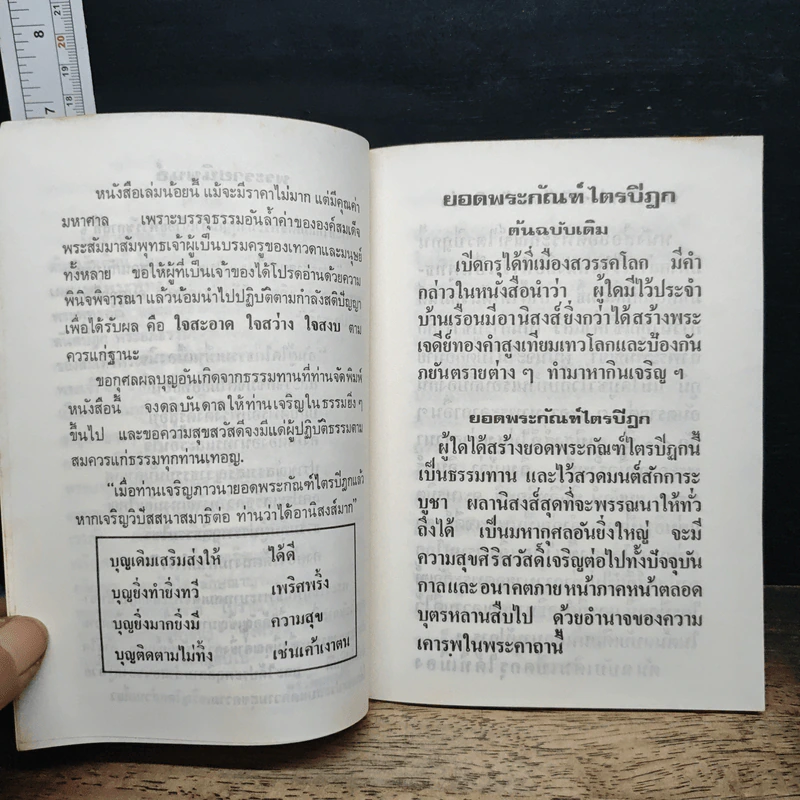 8
20
21
19
18
7
หนังสือเล่มน้อยนี้ แม้จะมีราคาไม่มาก แต่มีคุณค่า
มหาศาล เพราะบรรจุธรรมอันล้ำค่าขององค์สมเด็จ
พระสัมมาสัมพุทธเจ้าผู้เป็นบรมครูของเทวดาและมนุษย์
ทั้งหลาย ขอให้ผู้ที่เป็นเจ้าของได้โปรดอ่านด้วยความ
พินิจพิจารณา แล้วน้อมนำไปปฏิบัติตามกำลังสติปัญญา
เพื่อได้รับผล คือ ใจสะอาด ใจสว่าง ใจสงบ ตาม
ควรแก่ฐานะ
ขอกุศลผลบุญอันเกิดจากธรรมทานที่ท่านจัดพิมพ์
หนังสือนี้ จงดลบันดาลให้ท่านเจริญในธรรมยิ่งๆ
ขึ้นไป และขอความสุขสวัสดีจงมีแด่ผู้ปฏิบัติธรรมตาม
สมควรแก่ธรรมทุกท่านเทอญ.
"เมื่อท่านเจริญภาวนายอดพระกัณฑ์ไตรปีฎกแล้ว
หากเจริญวิปัสสนาสมาธิต่อ ท่านว่าได้อานิสงส์มาก"
บุญเติมเสริมส่งให้ ได้ดี
บุญยิ่งทำยิ่งทวี เพริศพริ้ง
บุญยิ่งมากยิ่งมี ความสุข
บุญติดตามไม่ทิ้ง เช่นเค้าเงาตน
ยอดพระกัณฑ์ไตรปีฎก
ต้นฉบับเดิม
เปิดกรุได้ที่เมืองสวรรคโลก มีคำ
กล่าวในหนังสือนำว่า ผู้ใดมีไว้ประจำ
บ้านเรือนมีอานิสงส์ยิ่งกว่าได้สร้างพระ
เจดีย์ทองคำสูงเทียมเทวโลกและป้องกัน
ภยันตรายต่าง ๆ ทำมาหากินเจริญ ฯ
ยอดพระกัณฑ์ไตรปีฎก
ผู้ใดได้สร้างยอดพระกัณฑ์ไตรปีฎกนี้
เป็นธรรมทาน และไว้สวดมนต์สักการะ
บูชา ผลานิสงส์สุดที่จะพรรณนาให้ทั่ว
ถึงได้ เป็นมหากุศลอันยิ่งใหญ่ จะมี
ความสุขศิริสวัสดิ์เจริญต่อไปทั้งปัจจุบัน
กาลและอนาคตภายหน้าภาคหน้าตลอด
บุตรหลานสืบไป ด้วยอำนาจของความ
เคารพในพระคาถานี้